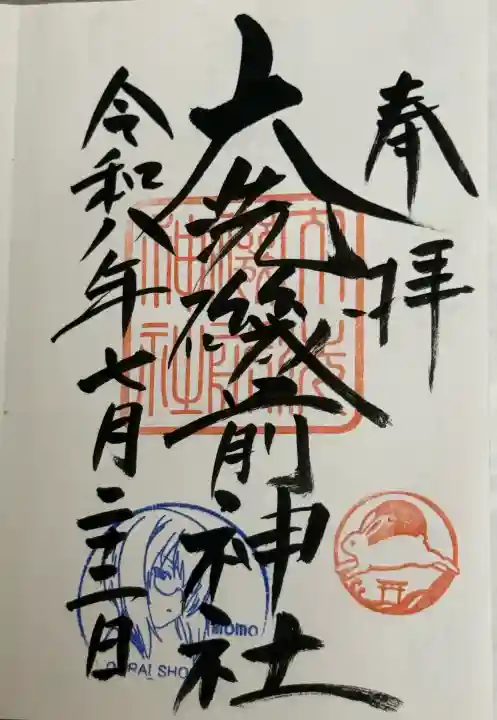 奉拝
大洗磯前神社
令和八年七月二十二日
大洗
磯前
神社
momo